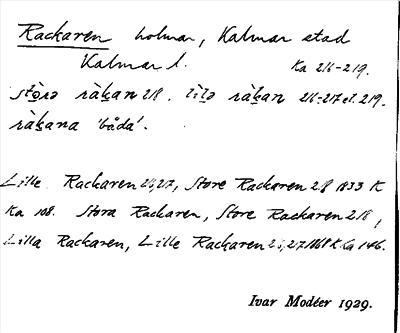 Rackaren holmar, Kalmar stad
Kalmar l. Ka 216-219.
stòrə ràkan 218. lìlə ràkan 216-217 el. 219.
ràkana 'båda'.
Lille Rackaren 26,27, Store Rackaren 28 1833 K
Ka 108. Stora Rackaren, Store Rackaren 218,
Lilla Rackaren, Lille Rackaren K Ka 146.
Ivar Modéer 1929.